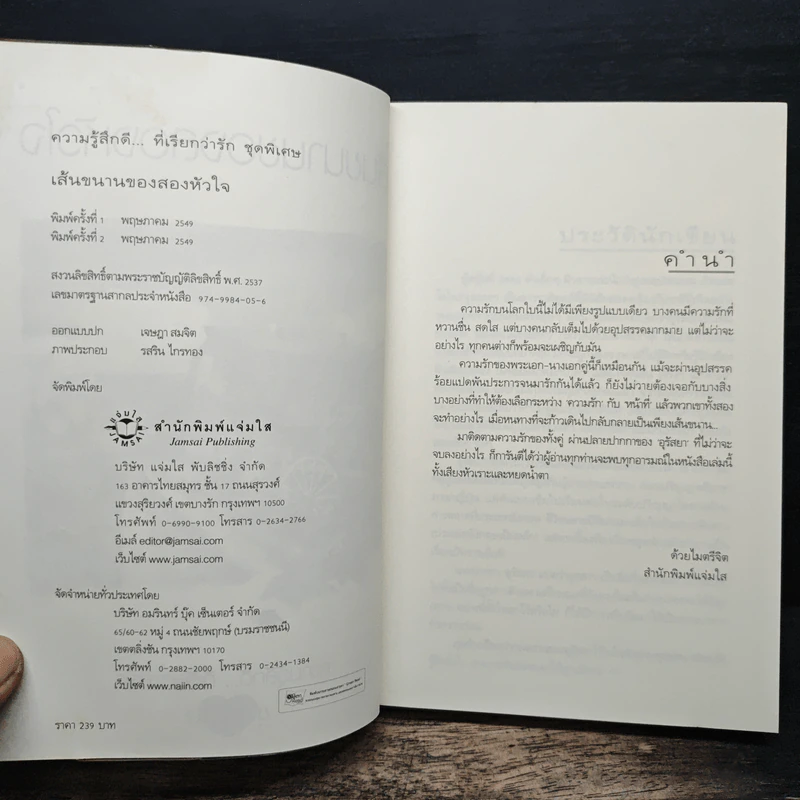 ความรู้สึกดี... ที่เรียกว่ารัก ชุดพิเศษ
เส้นขนานของสองหัวใจ
พิมพ์ครั้งที่ 1 พฤษภาคม 2549
พิมพ์ครั้งที่ 2 พฤษภาคม 2549
สงวนลิขสิทธิ์ตามพระราชบัญญัติลิขสิทธิ์ พ.ศ. 2537
เลขมาตรฐานสากลประจำหนังสือ 974-9984-05-6
ออกแบบปก เจษฎา สมจิต
ภาพประกอบ รสริน ไกรทอง
จัดพิมพ์โดย
สำนักพิมพ์แจ่มใส
Jamsai Publishing
บริษัท แจ่มใส พับลิชชิ่ง จำกัด
163 อาคารไทยสมุทร ชั้น 17 ถนนสุรวงศ์
แขวงสุริยวงศ์ เขตบางรัก กรุงเทพฯ 10500
โทรศัพท์ 0-6990-9100 โทรสาร 0-2634-2766
อีเมล์ editor@jamsai.com
เว็บไซต์ www.jamsai.com
จัดจำหน่ายทั่วประเทศโดย
บริษัท อมรินทร์ บุ๊ค เซ็นเตอร์ จำกัด
65/60-62 หมู่ 4 ถนนชัยพฤกษ์ (บรมราชชนนี)
เขตตลิ่งชัน กรุงเทพฯ 10170
โทรศัพท์ 0-2882-2000 โทรสาร 0-2434-1384
เว็บไซต์ www.naiin.com
ราคา 239 บาท
คำนำ
ความรักบนโลกใบนี้ไม่ได้มีเพียงรูปแบบเดียว บางคนมีความรักที่
หวานชื่น สดใส แต่บางคนกลับเต็มไปด้วยอุปสรรคมากมาย แต่ไม่ว่าจะ
อย่างไร ทุกคนต่างก็พร้อมจะเผชิญกับมัน
ความรักของพระเอก-นางเอกคู่นี้ก็เหมือนกัน แม้จะผ่านอุปสรรค
ร้อยแปดพันประการจนมารักกันได้แล้ว ก็ยังไม่วายต้องเจอกับบางสิ่ง
บางอย่างที่ทำให้ต้องเลือกระหว่าง 'ความรัก' กับ 'หน้าที่' แล้วพวกเขาทั้งสอง
จะทำอย่างไร เมื่อหนทางที่จะก้าวเดินไปกลับกลายเป็นเพียงเส้นขนาน...
มาติดตามความรักของทั้งคู่ ผ่านปลายปากกาของ 'อุรัสยา' ที่ไม่ว่าจะ
จบลงอย่างไร ก็การันตีได้ว่าผู้อ่านทุกท่านจะพบทุกอารมณ์ในหนังสือเล่มนี้
ทั้งเสียงหัวเราะและหยดน้ำตา
ด้วยไมตรีจิต
สำนักพิมพ์แจ่มใส